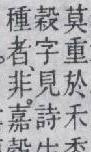 莫重於禾
穀字見詩
種者非嘉